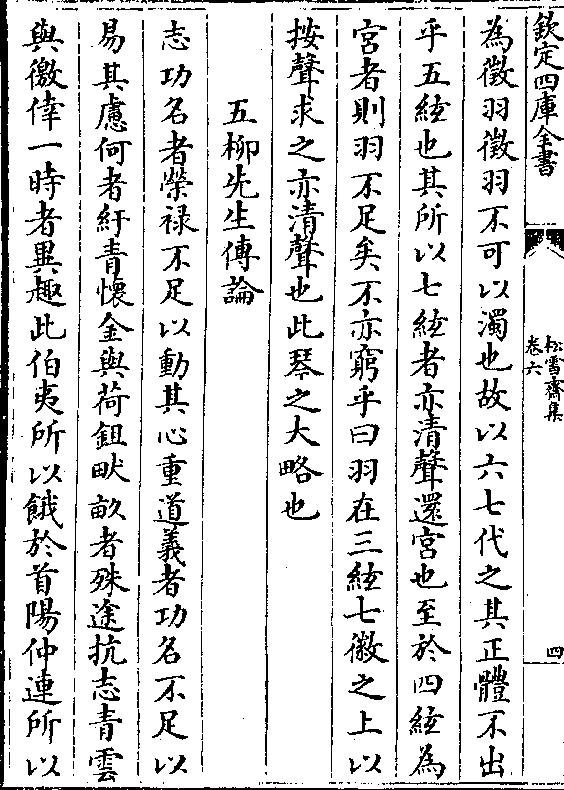 欽定四庫全書
松雪齋集
卷六
四
為徵羽徵羽不可以濁也故以六七代之其正體不出
乎五絃也其所以七絃者亦清聲還宮也至於四絃為
宮者則羽不足矣不亦窮乎曰羽在三絃七徽之上以
按聲求之亦清聲也此琴之大略也
五柳先生傳論
志功名者榮禄不足以動其心重道義者功名不足以
易其慮何者紆青懷金與荷鉏畎畝者殊途抗志青雲
與徼倖一時者異趣此伯夷所以餓於首陽仲連所以